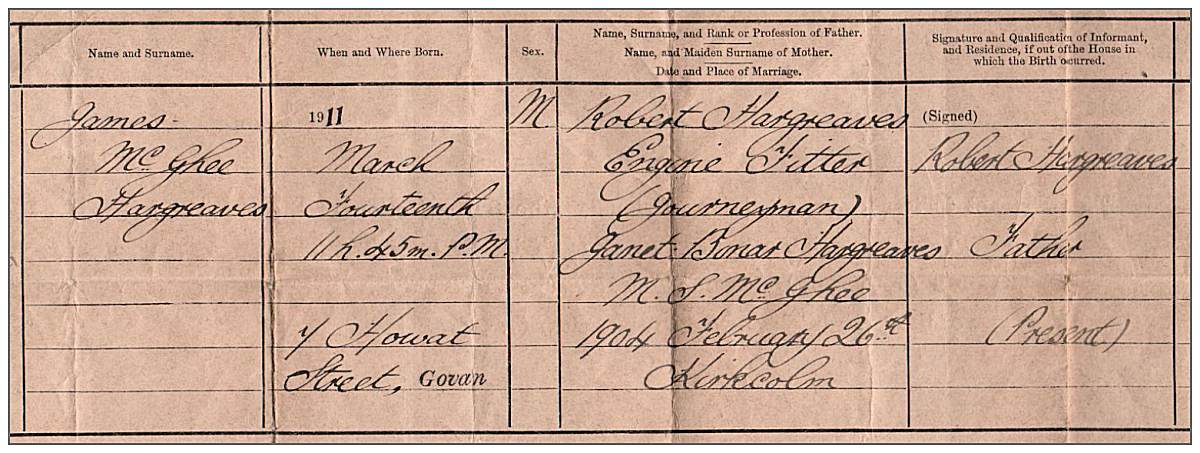 Name and Surname.
When and Where Born.
Sex.
Name, Surname, and Rank or Profession of Father.
Name, and Maiden Surname of Mother.
Date and Place of Marriage.
Signature and Qualification of Informant,
and Residence, if out of the House in
which the Birth occurred.
James
McGhee
Hargreaves
1911
March
Fourteenth
11h. 45m. P.M.
7 Howat
Street, Govan
M
Robert Hargreaves
Engine Fitter
(Journeyman)
Janet Bonar Hargreaves
M. S. McGhee
1904 February 26th
Kirkcolm
(Signed)
Robert Hargreaves
Father
(Present)